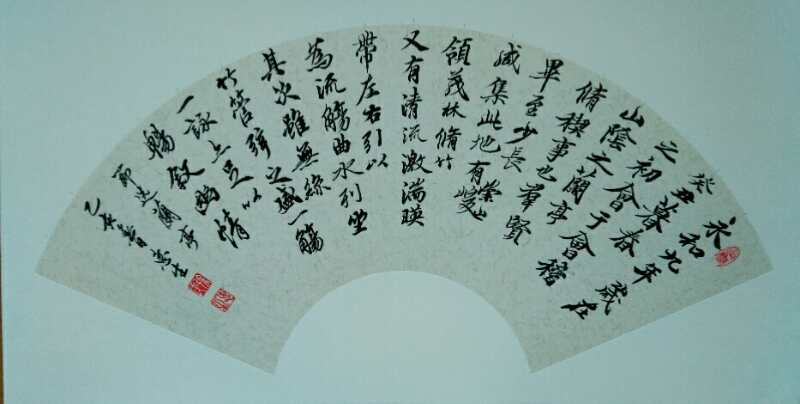 永和九年歲在
癸丑暮春
之初會于會稽
山陰之蘭亭
脩禊事也羣賢
畢至少長
咸集此地有崇山峻
領茂林脩竹
又有清流激湍暎
帶左右引以
為流觴曲水列坐
其次雖無絲
竹管弦之盛一觴
一詠亦足以
暢敘幽情
節選蘭亭序